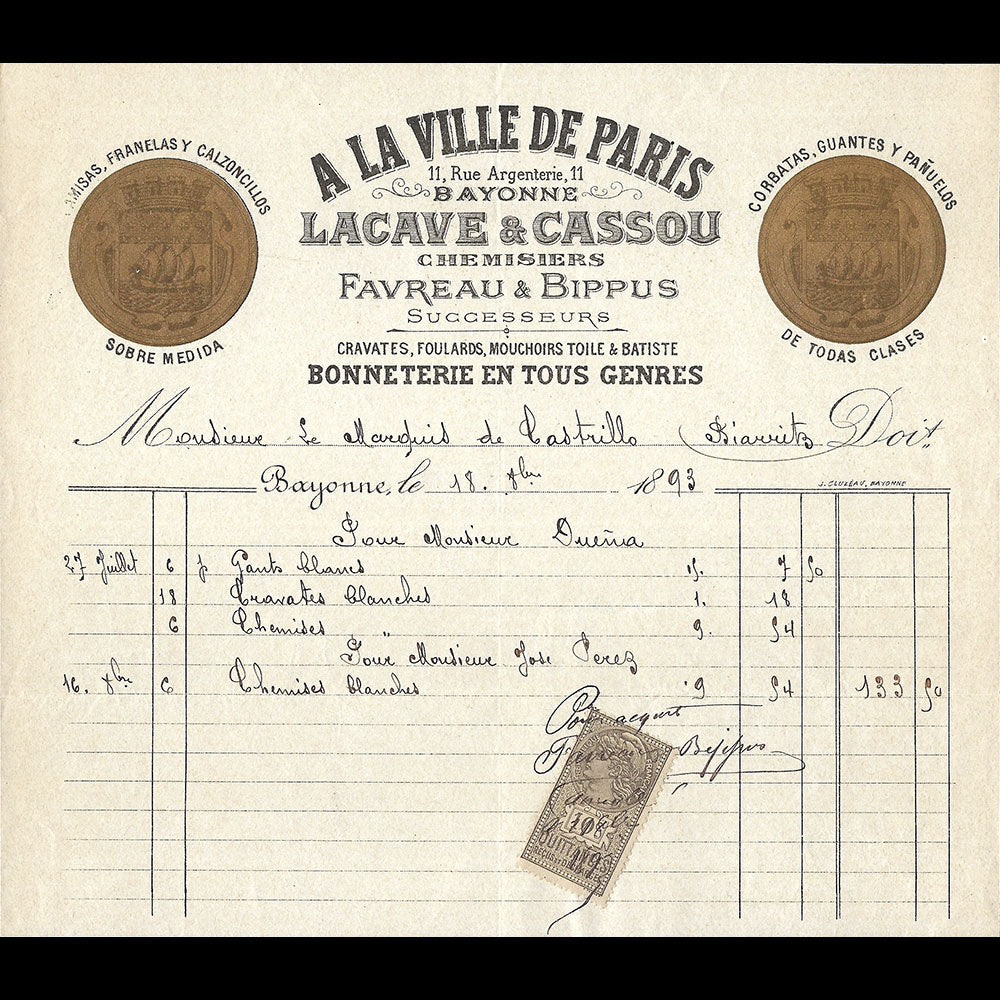 A LA VILLE DE PARIS
11, Rue Argenterie, 11
BAYONNE
LACAVE & CASSOU
CHEMISIERS
FAVREAU & BIPPUS
SUCCESSEURS
CRAVATES, FOULARDS, MOUCHOIRS TOILE & BATISTE
BONNETERIE EN TOUS GENRES
CAMISAS, FRANELAS Y CALZONCILLOS
SOBRE MEDIDA
CORBATAS, GUANTES Y PAÑUELOS
DE TODAS CLASES
Monsieur Le Marquis de Castrillo Biarritz Doit
J. CLUZEAU, BAYONNE
Bayonne, le 18. 8bre 1893
Pour Monsieur Dueña
27 Juillet 6 p Gants blancs 7 50
18 Cravates blanches 1. 18
6 Chemises " 9. 54
Pour Monsieur Jose Perez
16. 8bre 6 Chemises blanches 9 54 133 50
Pour acquit
Bippus
10c
QUITTANCES